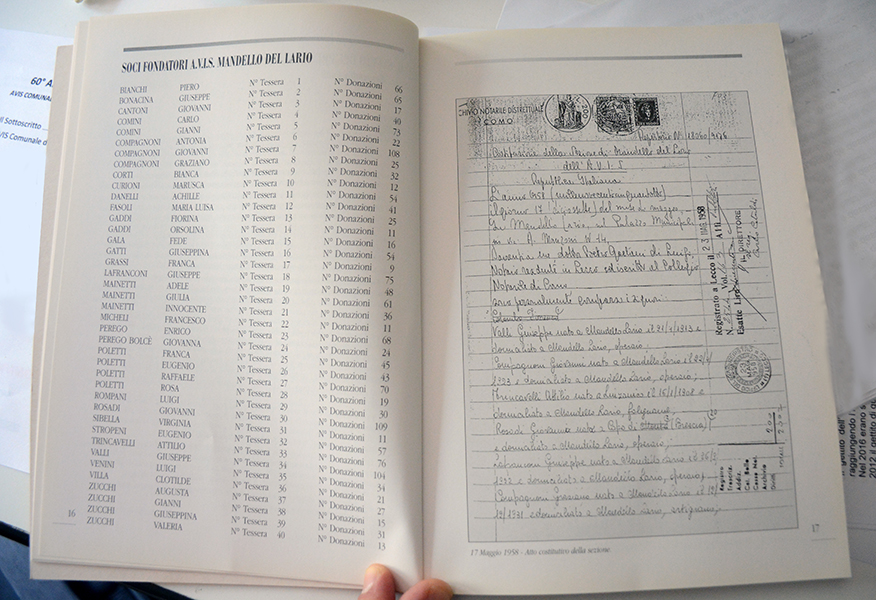 SOCI FONDATORI A.V.I.S. MANDELLO DEL LARIO
BIANCHI PIERO N° Tessera 1 N° Donazioni 66
BONACINA GIUSEPPE N° Tessera 2 N° Donazioni 65
CANTONI GIOVANNI N° Tessera 3 N° Donazioni 17
COMINI CARLO N° Tessera 4 N° Donazioni 40
COMINI GIANNI N° Tessera 5 N° Donazioni 73
COMPAGNONI ANTONIA N° Tessera 6 N° Donazioni 22
COMPAGNONI GIOVANNI N° Tessera 7 N° Donazioni 108
COMPAGNONI GRAZIANO N° Tessera 8 N° Donazioni 25
CORTI BIANCA N° Tessera 9 N° Donazioni 32
CURIONI MARUSCA N° Tessera 10 N° Donazioni 12
DANELLI ACHILLE N° Tessera 11 N° Donazioni 54
FASOLI MARIA LUISA N° Tessera 12 N° Donazioni 41
GADDI FIORINA N° Tessera 13 N° Donazioni 25
GADDI ORSOLINA N° Tessera 14 N° Donazioni 11
GALA FEDE N° Tessera 15 N° Donazioni 16
GATTI GIUSEPPINA N° Tessera 16 N° Donazioni 54
GRASSI FRANCA N° Tessera 17 N° Donazioni 9
LAFRANCONI GIUSEPPE N° Tessera 18 N° Donazioni 75
MAINETTI ADELE N° Tessera 19 N° Donazioni 48
MAINETTI GIULIA N° Tessera 20 N° Donazioni 61
MAINETTI INNOCENTE N° Tessera 21 N° Donazioni 36
MICHELI FRANCESCO N° Tessera 22 N° Donazioni 11
PEREGO ENRICO N° Tessera 23 N° Donazioni 68
PEREGO BOLCÈ GIOVANNA N° Tessera 24 N° Donazioni 24
POLETTI FRANCA N° Tessera 25 N° Donazioni 45
POLETTI EUGENIO N° Tessera 26 N° Donazioni 43
POLETTI RAFFAELE N° Tessera 27 N° Donazioni 70
POLETTI ROSA N° Tessera 28 N° Donazioni 19
ROMPANI LUIGI N° Tessera 29 N° Donazioni 30
ROSADI GIOVANNI N° Tessera 30 N° Donazioni 109
SIBELLA VIRGINIA N° Tessera 31 N° Donazioni 11
STROPENI EUGENIO N° Tessera 32 N° Donazioni 57
TRINCAVELLI ATTILIO N° Tessera 33 N° Donazioni 76
VALLI GIUSEPPE N° Tessera 34 N° Donazioni 104
VENINI LUIGI N° Tessera 35 N° Donazioni 34
VILLA CLOTILDE N° Tessera 36 N° Donazioni 21
ZUCCHI AUGUSTA N° Tessera 37 N° Donazioni 27
ZUCCHI GIANNI N° Tessera 38 N° Donazioni 15
ZUCCHI GIUSEPPINA N° Tessera 39 N° Donazioni 31
ZUCCHI VALERIA N° Tessera 40 N° Donazioni 13
16
CHIVIO NOTARILE DISTRETTUALE
COMO
della Sezione di Mandello del Lario
dell'A.V.I.S.
Repubblica Italiana
L'anno 1958
il giorno 17
In Mandello Lario, nel Palazzo Municipale
in via A. Manzoni N. 44
Notaio residente in Lecco ed iscritto al Collegio
Notarile di Como
sono personalmente comparsi i signori
Valli Giuseppe nato a Mandello Lario il
domiciliato a Mandello Lario, operaio;
Compagnoni Giovanni nato a Mandello Lario il
e domiciliato a Mandello Lario, operaio;
Trincavelli Attilio nato a
domiciliato a Mandello Lario, falegname,
Rosadi Giovanni nato a (Brescia)
e domiciliato a Mandello Lario, operaio;
Lafranconi Giuseppe nato a Mandello Lario il
e domiciliato a Mandello Lario, operaio;
Compagnoni Graziano nato a Mandello Lario il
e domiciliato a Mandello Lario, artigiano;
Registrato a Lecco il 23 MAG 1958
IL DIRETTORE
Esatte Lire
Registro
Trascriz.
Archivio
17 Maggio 1958 - Atto costitutivo della sezione.
17
60° A
AVIS COMUNAL
Il Sottoscritto
VIS Comunale d
raggiungendo i
Nel 2016 erano s
2012 il gettito di g